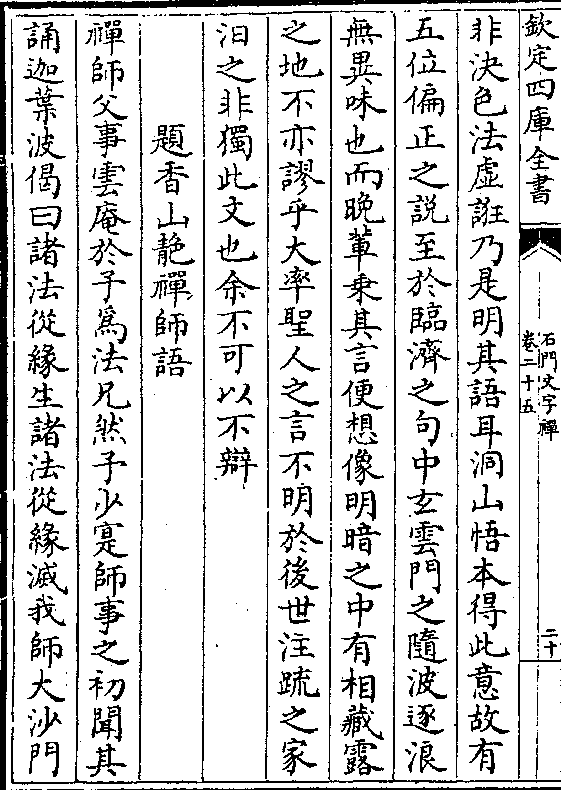 欽定四庫全書
石門文字禪
卷二十五
二十
非決色法虛誑乃是明其語耳洞山悟本得此意故有
五位偏正之說至於臨濟之句中玄雲門之隨波逐浪
無異味也而晩輩乗其言便想像明暗之中有相藏露
之地不亦謬乎大率聖人之言不明於後世注疏之家
汩之非獨此文也余不可以不辯
題香山靘禪師語
禪師父事雲庵於予為法兄然予少寔師事之初聞其
誦迦葉波偈曰諸法從緣生諸法從緣滅我師大沙門